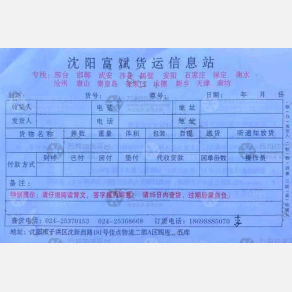 沈阳富斌货运信息站
专线：邢台 邯郸 武安 沙县 鹤壁 安阳 石家庄 保定 衡水
沧州 唐山 秦皇岛 张家口 承德 新乡 天津 廊坊
货号： 票号： 日期： 年 月 份
收货人 电话 地址
发货人 电话 地址
货物名称 件数 重量 体积 包装 自提 送货 听通知放货
付款方式 到付 已付 回付 垫付 代收货款 回单份数 操作员
备注：
特别提示：请仔细阅读背文，签字视为同意。请15日内查货，过期后果自负。
查货电话：024-25370153 024-25368668 订货电话：18698885070
地址：沈阳市于洪区沈新西路101号佳点物流二部A区